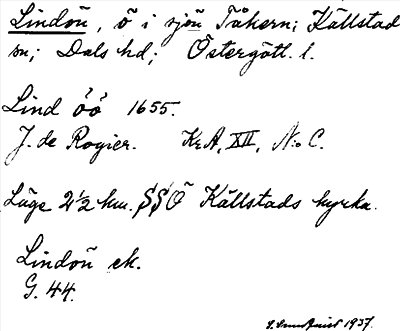 Lindön, ö i sjön Tåkern; Källstad
sn; Dals hd; Östergötl. l.
Lind öö 1655.
J. de Rogier. KrA, XII, No C.
Läge 2 1/2 km. SSÖ Källstads kyrka.
Lindön ek.
G. 44.
1937.